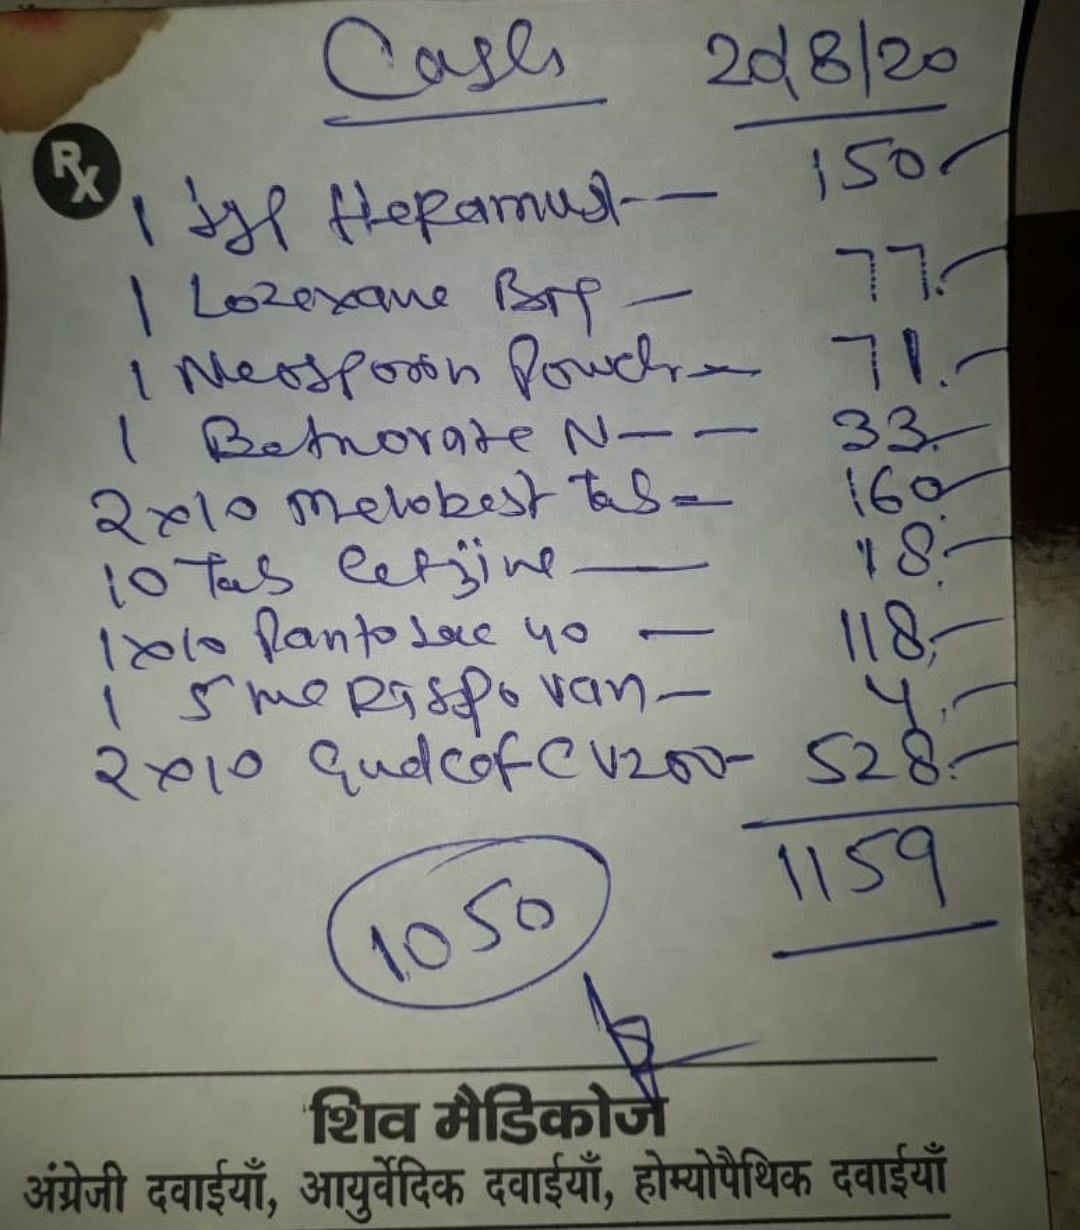 Cash 20/8/20
Rx
1 Syp Hepamust -- 150/-
1 Lozexane Brp - 77/-
1 Neosporin Powder - 71/-
1 Betnovate N -- 33/-
2x10 Melobest Tab - 160/-
10 Tab Cetzine - 18/-
1x10 Pantosec 40 - 118/-
1 5 ml Dispovan - 4/-
2x10 Gudcef CV200 - 528/-
1159
1050
शिव मैडिकोज
अंग्रेजी दवाईयाँ, आयुर्वेदिक दवाईयाँ, होम्योपैथिक दवाईयाँ